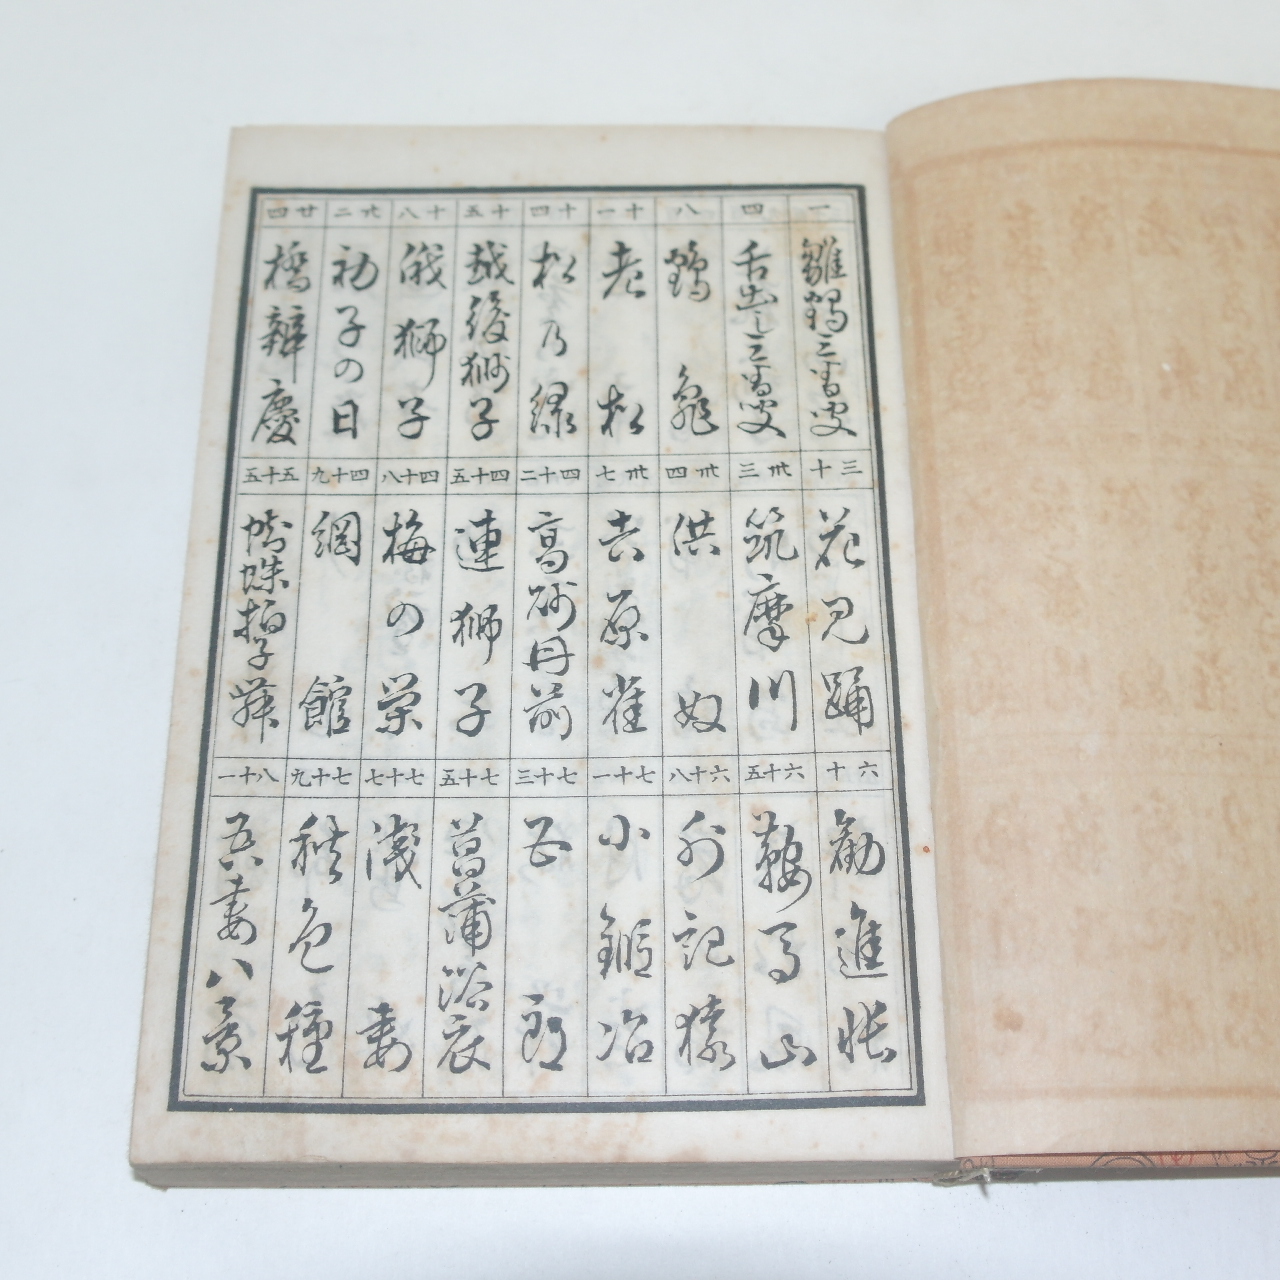 一
雛鶴三番叟
四
舌出し三番叟
八
鶴亀
十一
老松
十四
松乃緑
十五
越後獅子
十八
俄獅子
廿二
初子の日
廿四
橋辨慶
三十
花見踊
丗三
筑摩川
丗四
供奴
丗七
吉原雀
四十二
高砂丹前
四十五
連獅子
四十八
梅の栄
四十九
綱館
五十五
蜘蛛拍子舞
六十
勧進帳
六十五
鞍馬山
六十八
外記猿
七十一
小鍛冶
七十三
五郎
七十五
菖蒲浴衣
七十七
淺妻
七十九
秋色種
八十一
吾妻八景